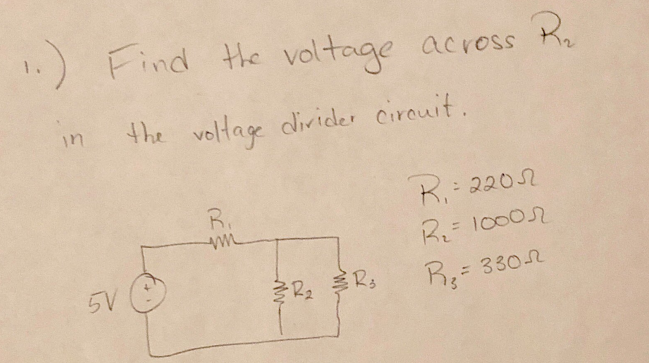 1.) Find the voltage across R₂
in the voltage divider circuit.
R₁ = 220Ω
R₂ = 1000Ω
R₃ = 330Ω
R₁
5V
+
-
R₂
R₃